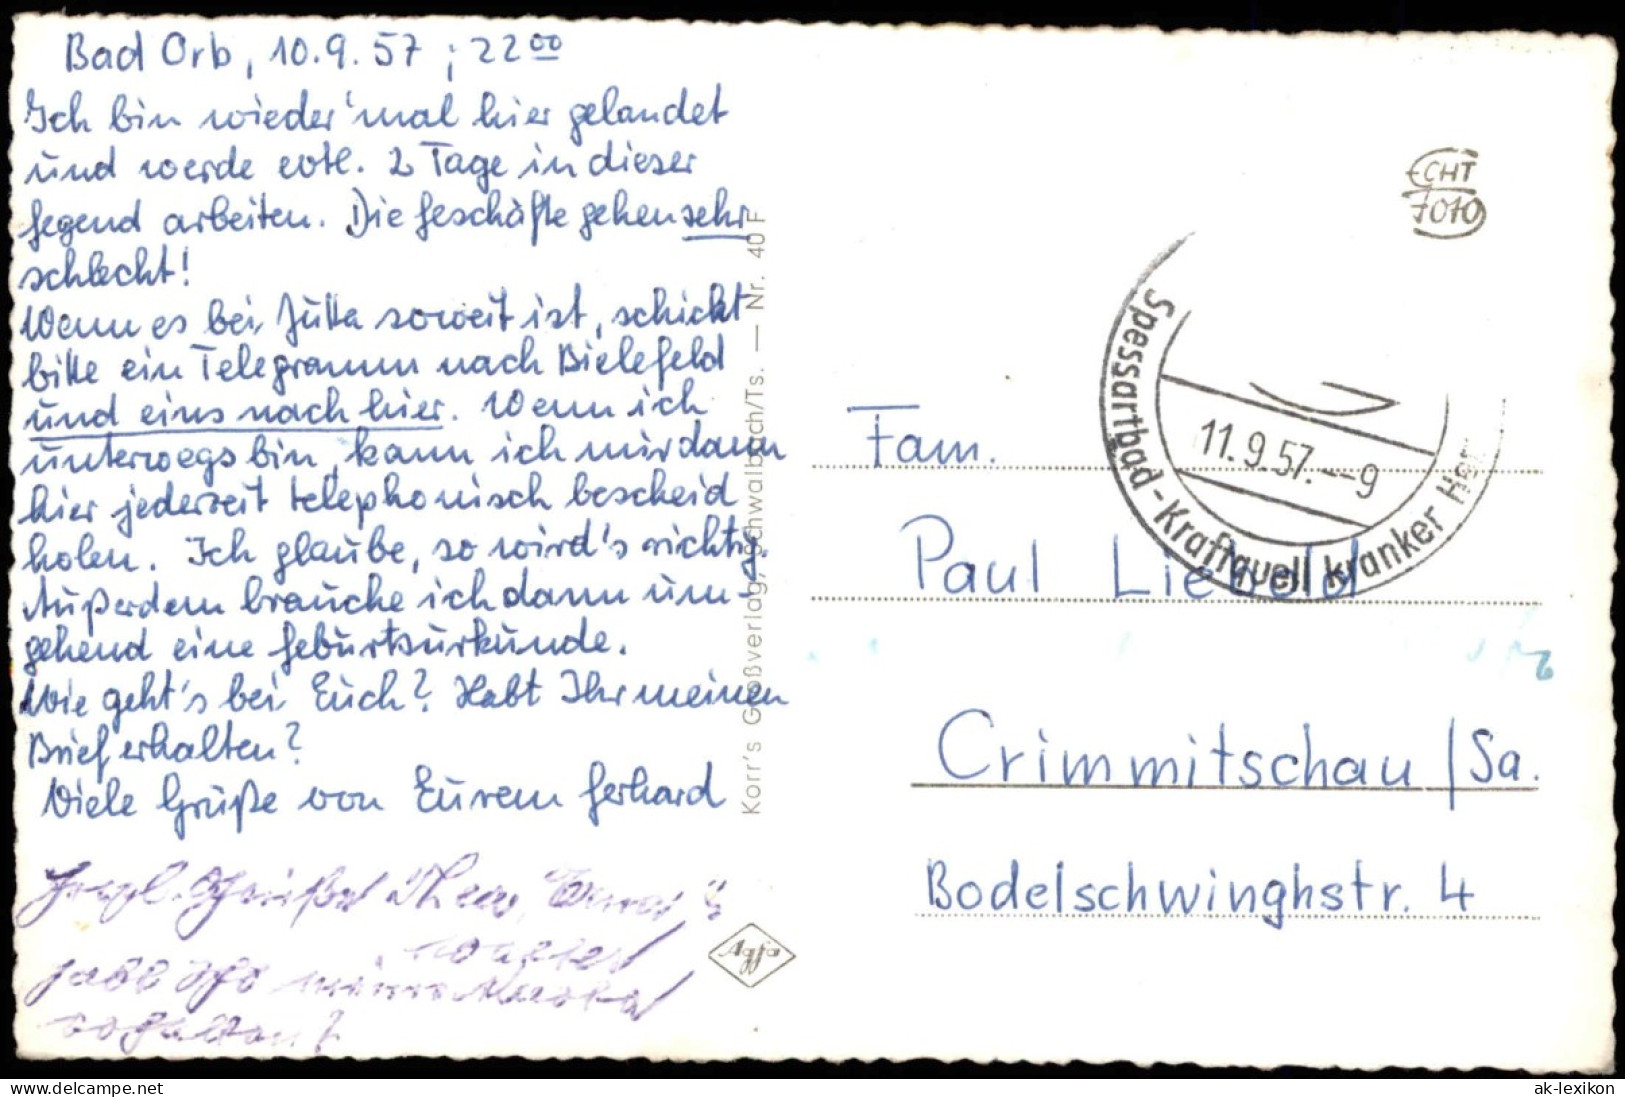 Bad Orb, 10.9.57; 22⁰⁰
Ich bin wieder 'mal hier gelandet
und werde evtl. 2 Tage in dieser
Gegend arbeiten. Die Geschäfte gehen sehr
schlecht!
Wenn es bei Jutta soweit ist, schickt
bitte ein Telegramm nach Bielefeld
und eins nach hier. Wenn ich
unterwegs bin, kann ich mir dann
hier jederzeit telephonisch bescheid
holen. Ich glaube, so wird's richtig.
Außerdem brauche ich dann um-
gehend eine Geburtsurkunde.
Wie geht's bei Euch? Habt Ihr meinen
Brief erhalten?
Viele Grüße von Eurem Gerhard
Herzl. Grüße
Walter
habt Ihr meine
erhalten?
Korr's Großverlag, Schwalbach/Ts. — Nr. 40 F
Agfa
ECHT
FOTO
Spessartbad - Kraftquell kranker Her
11.9.57.--9
Fam.
Paul Liebold
Crimmitschau / Sa.
Bodelschwinghstr. 4
www.delcampe.net
ak-lexikon